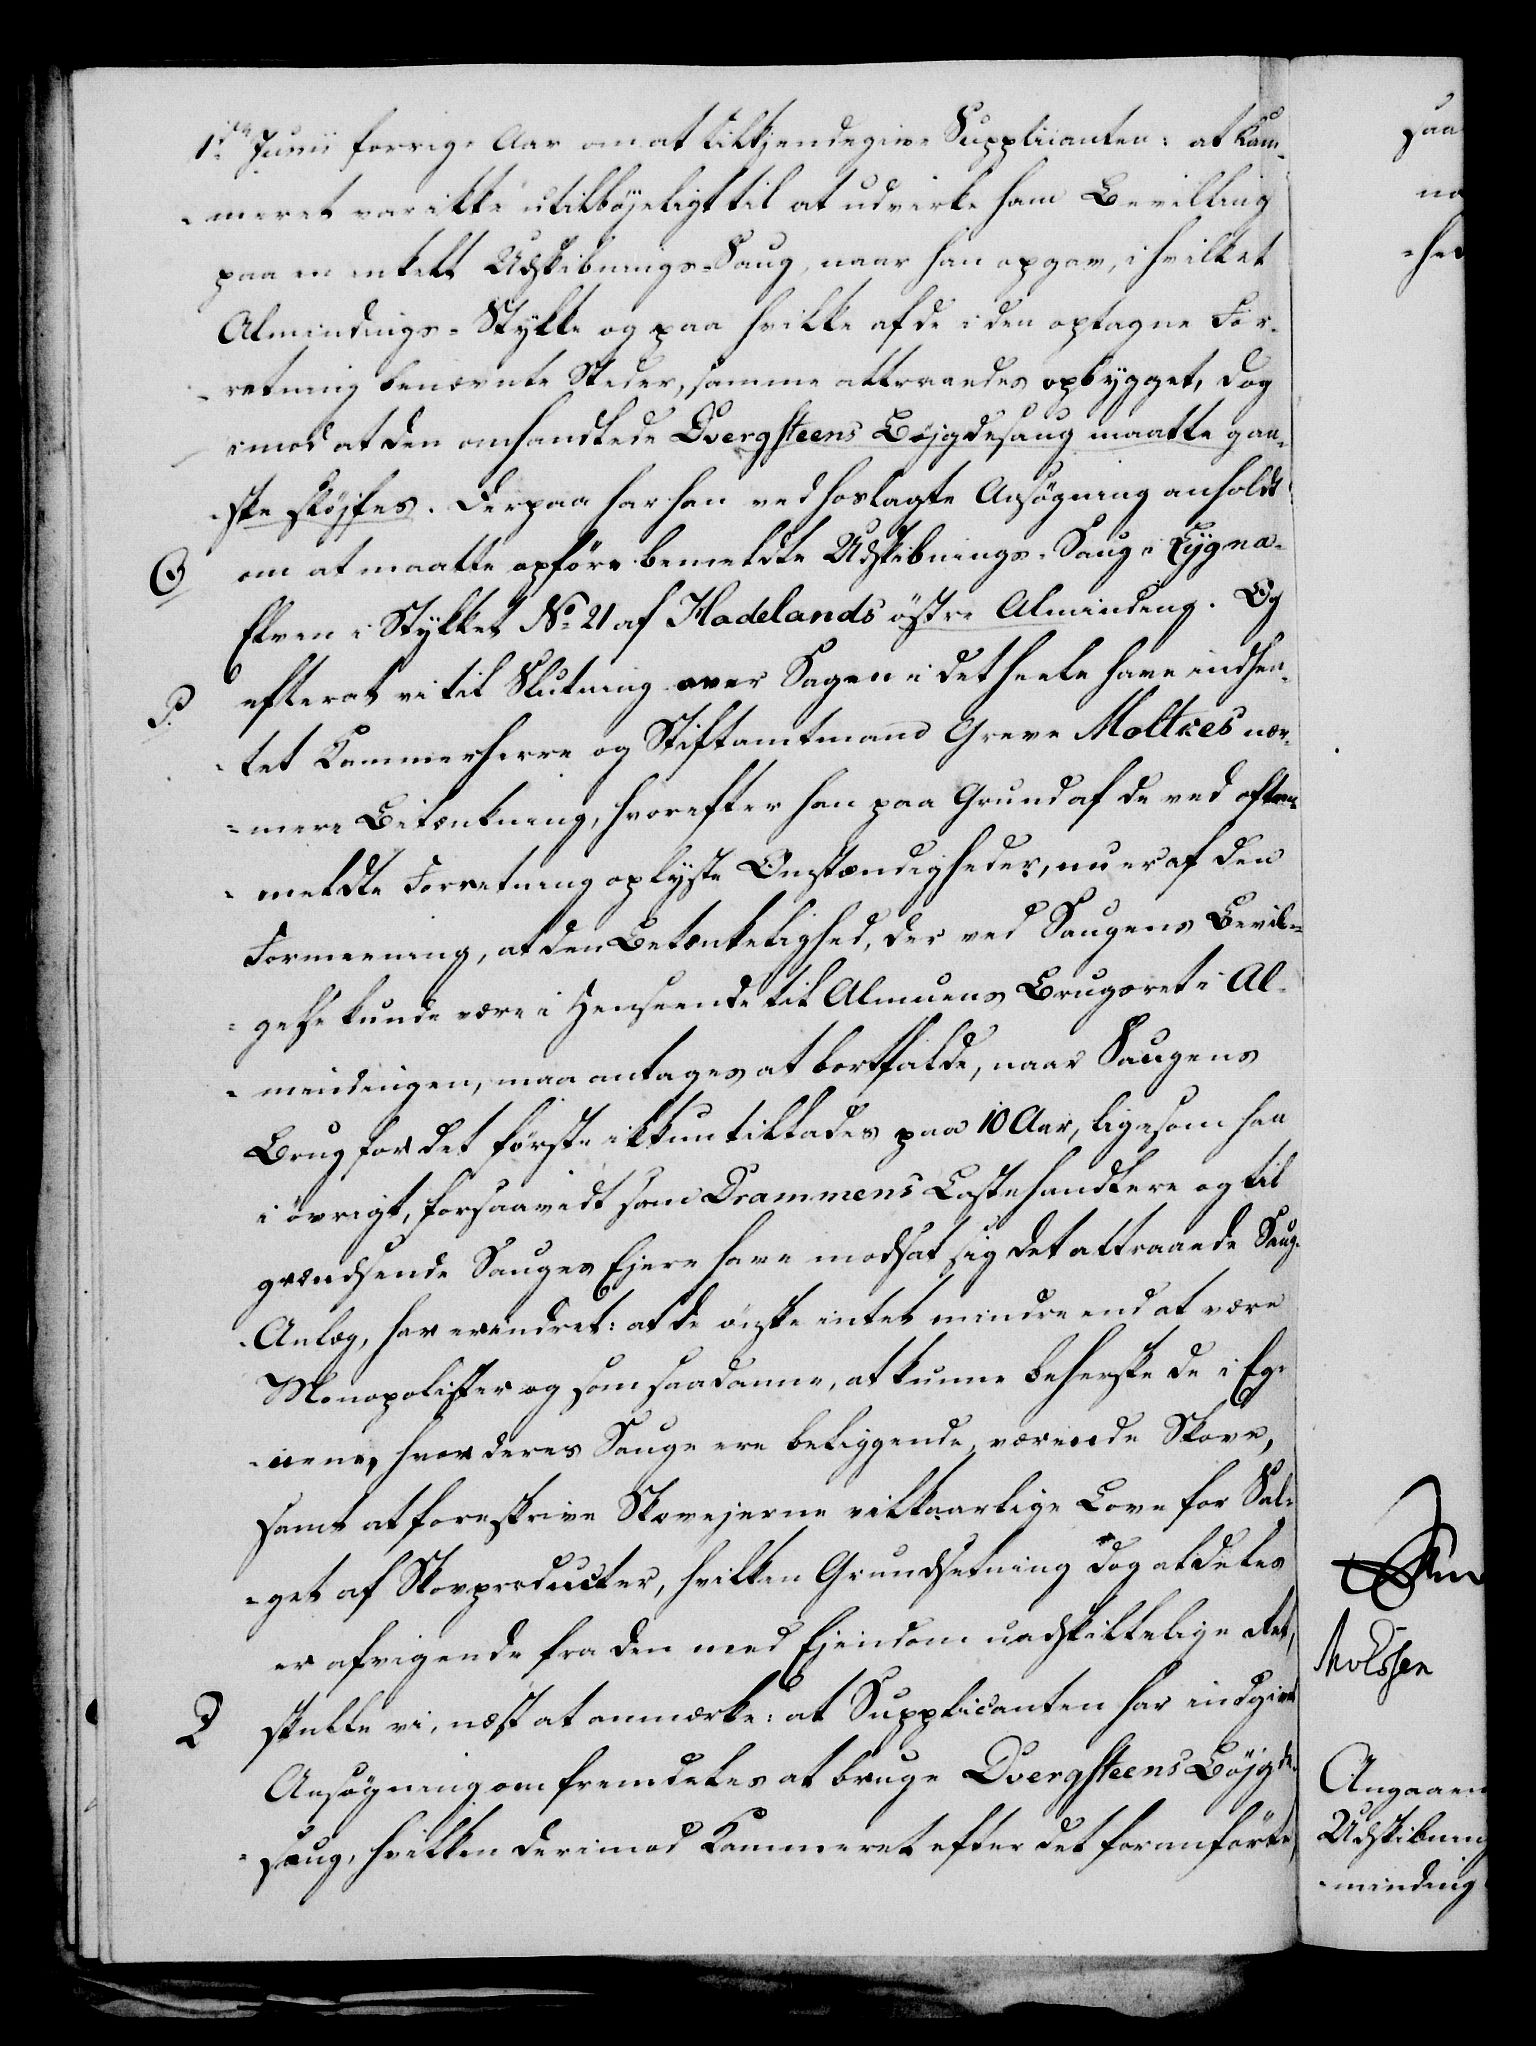 1ste Junii forrige Aar om at tilkjendegive Supplicanten: at Kam-
-meret var ikke utilböjeligt til at udvirke ham Bevilling
paa en enkelt Udskibnings-Saug, naar han opgav, i hvilket
Almindings-Stykke og paa hvilke af de i den optagne For-
-retning benævnte Steder, samme attraaedes opbygget, dog
imod at den omhandlede Dvergsteens Böjgdesaug maatte gan-
-ske slöjfes. Derpaa har han ved hoslagte Ansögning anholdt
O om at maatte opföre bemeldte Udskibnings-Saug i Lygna-
Elven i Stykket No 21 af Hadelands östre Alminding. Og
P. efterat vi til Slutning over Sagen i det heele have indhen-
-tet Kammerherre og Stiftamtmand Greve Moltkes nær-
-mere Betænkning, hvorefter han paa Grund af de ved often-
-meldte Forretning oplyste Omstændigheder, nu er af den
Formeening, at den Betænkelighed, der ved Saugens Bevil-
-gelse kunde være i Henseende til Almuens Brugsret i Al-
-mindingen, maa antages at bortfalde, naar Saugens
Brug for det förste ikkun tillades paa 10 Aar, ligesom han
i övrigt, forsaavidt som Drammens Lastehandlere og til
grændsende Sauges Ejere have modsat sig det attraaede Saug-
-Anlæg, har erindret: at de önske intet mindre end at være
Monopolister og som saadanne, at kunne beherske de i Eg-
-nene, hvor deres Sauge ere beliggende, værende Skove,
samt at foreskrive Skovejerne vilkaarlige Love for Sal-
-get af Skovproducter, hvilken Grundsetning dog aldeles
er afvigende fra den med Ejendom uadskillelige Ret,
Q skulle vi, næst at anmærke: at Supplicanten har indgivet
Ansögning om fremdeles at bruge Dvergsteens Böjgde-
-saug, hvilken derimod Kammeret efter det foranförte,
saa
na
-hed
Molssen
Angaaen
Udskibning
-minding